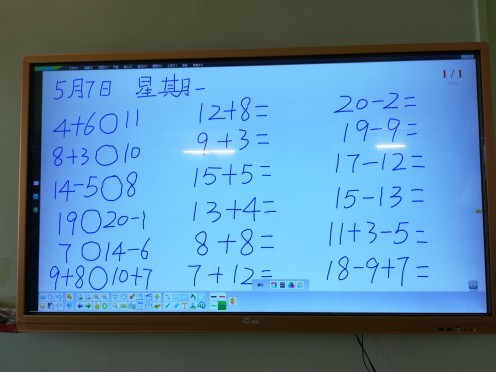 1/1
5月7日 星期一
4+6○11 12+8= 20-2=
8+3○10 9+3= 19-9=
14-5○8 15+5= 17-12=
19○20-1 13+4= 15-13=
7○14-6 8+8= 11+3-5=
9+8○10+7 7+12= 18-9+7=